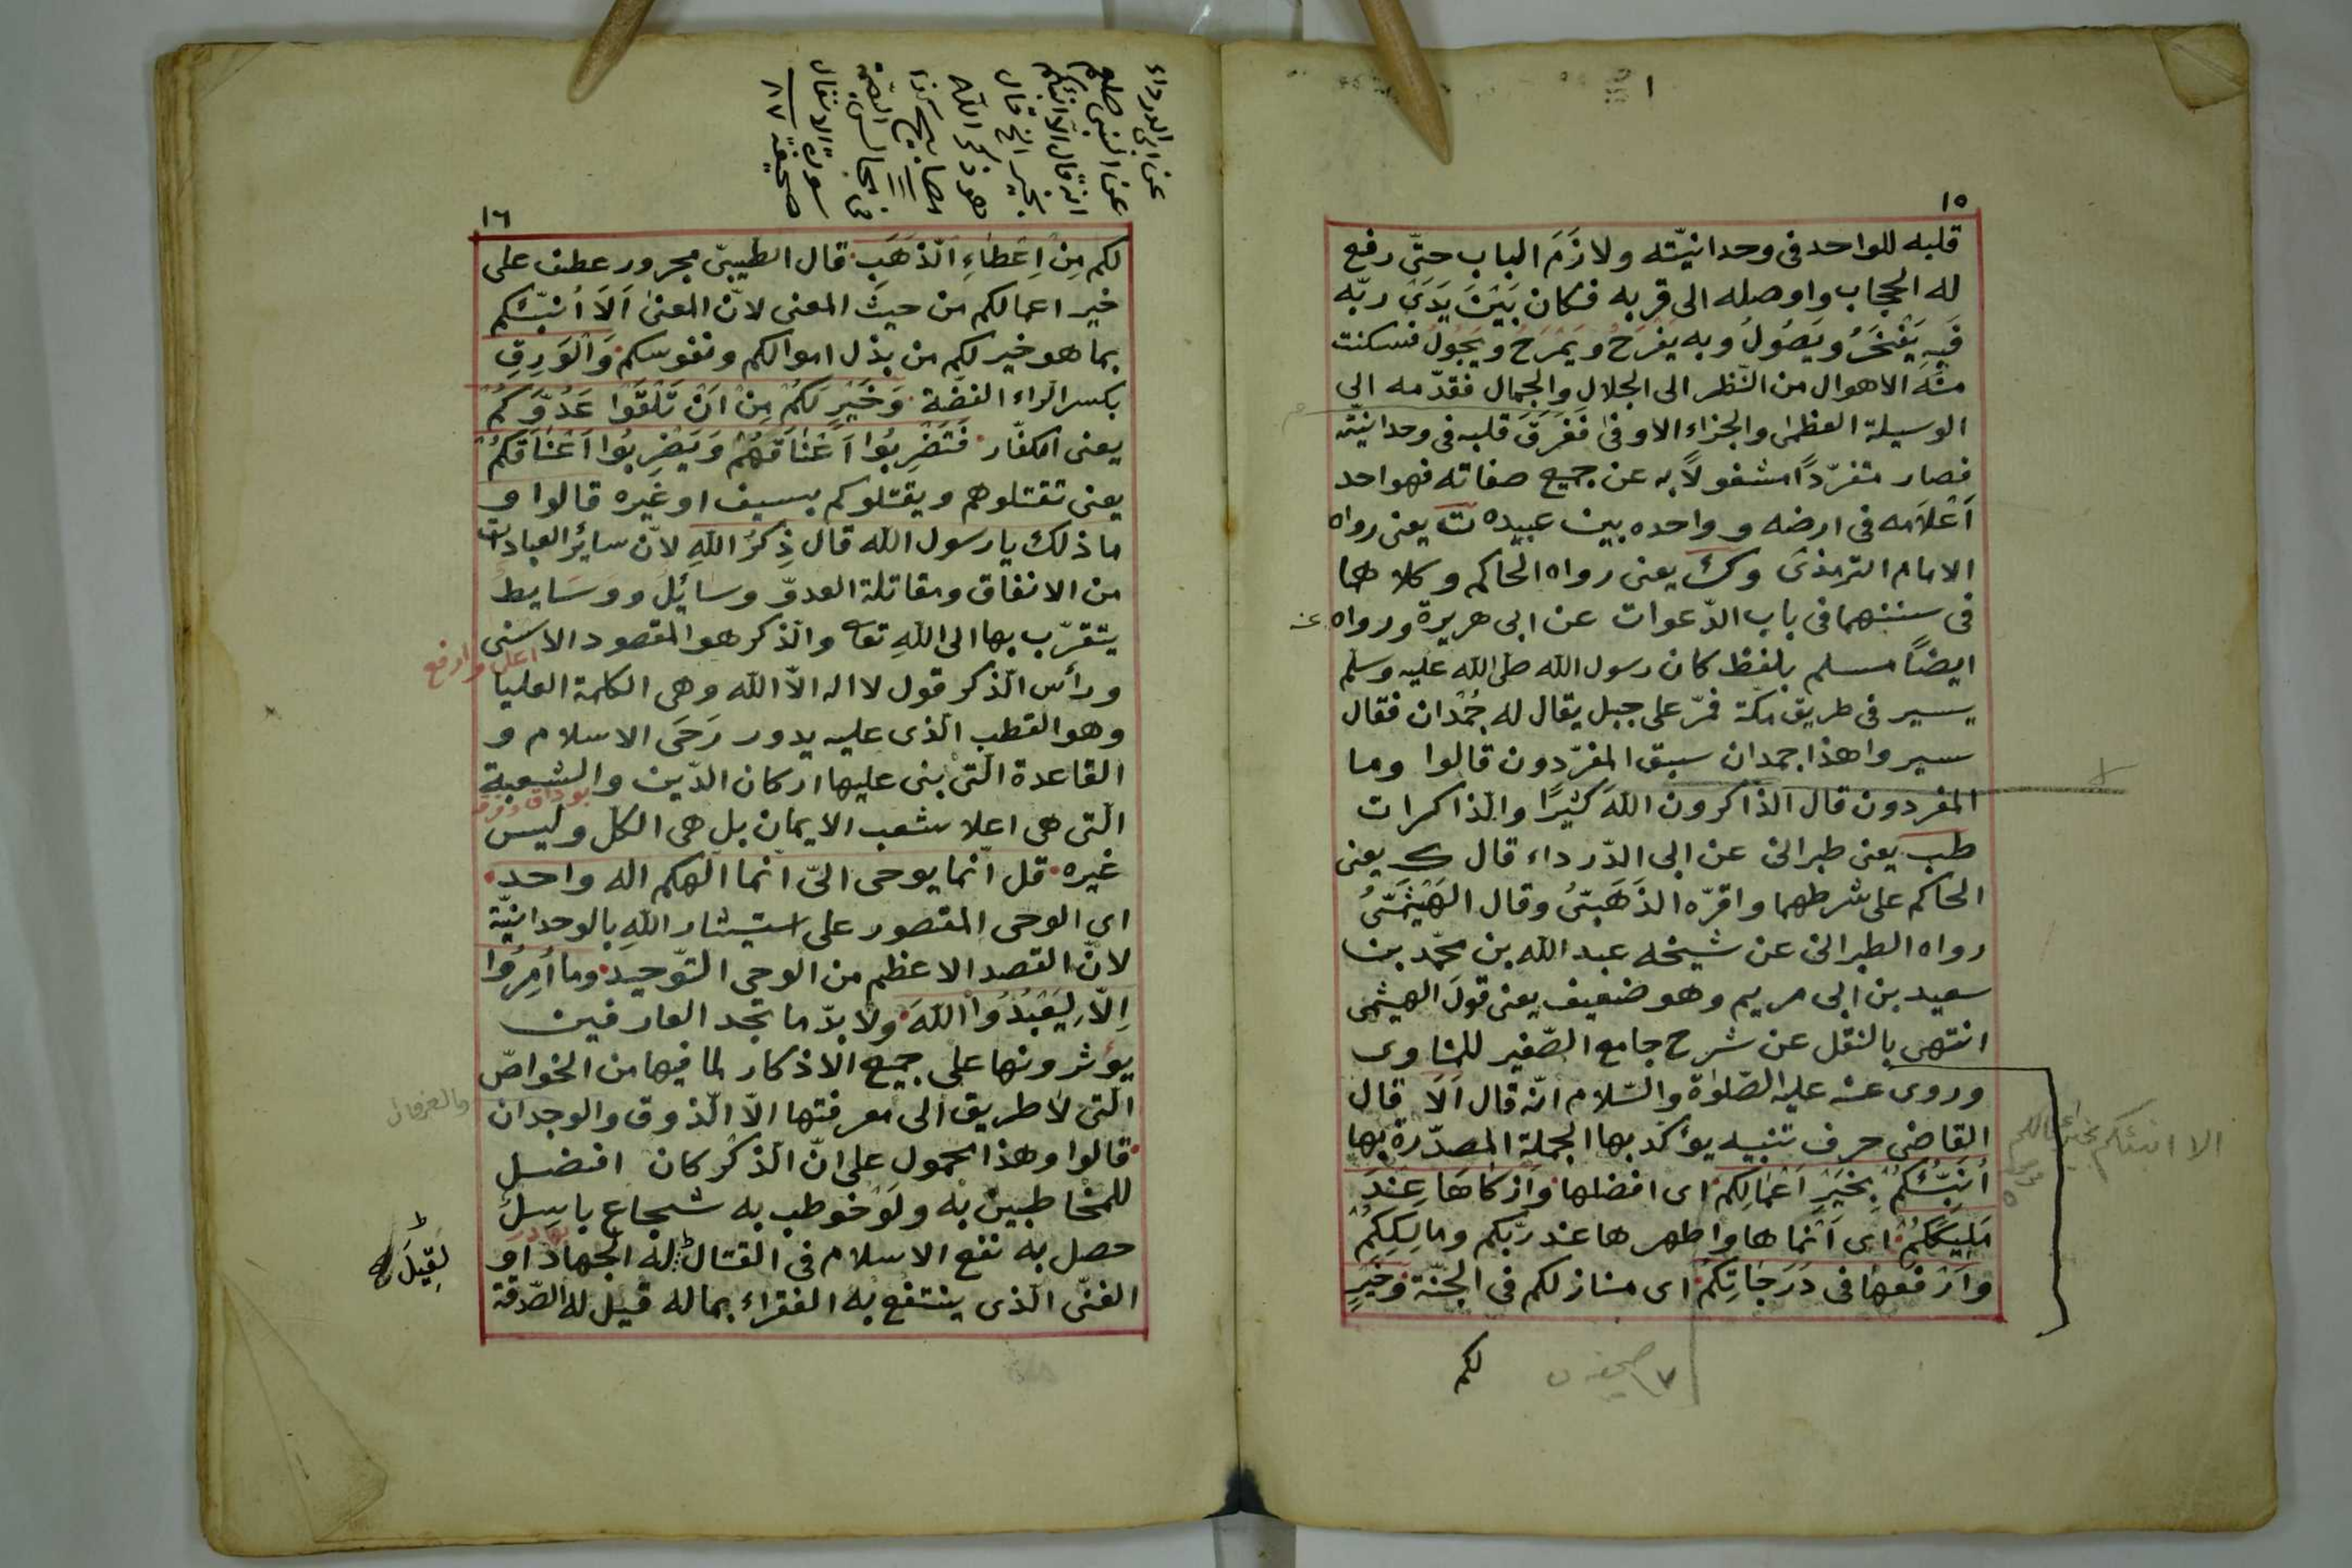 ١٥
قلبه للواحد فى وحدانيّته ولازَمَ الباب حتّى رفع
له الحجاب واوصله الى قربه فكان بَيْنَ يَدَىْ ربّه
فَبِهِ يَفْخَرُ ويَصُولُ وبه يَفْرَحُ ويَمْرَحُ ويَجُولُ فسكنت
منه الاهوال من النّظر الى الجلال والجمال فقدّمه الى
الوسيلة العظمى والجزاء الاوفى فَفَرَّقَ قلبه فى وحدانيّته
فصار متفرّداً مشغولاً به عن جميع صفاته فهو احد
اَعْلاَمه فى ارضه وواحده بين عبيده ت يعنى رواه
الامام الترمذى وك يعنى رواه الحاكم وكلاهما
فى سننهما فى باب الدّعوات عن ابى هريرة ورواه عنه
ايضاً مسلم بلفظ كان رسول الله صلى الله عليه وسلم
يسير فى طريق مكة فمرّ على جبل يقال له جُمْدان فقال
سيروا هذا جمدان سبق المفرّدون قالوا وما
المفردون قال الذاكرون اللهَ كثيرًا والذاكرات
طب يعنى طبرانى عن ابى الدّرداء قال ك يعنى
الحاكم على شرطهما واقرّه الذَهَبىُّ وقال الهَيْثَمىُّ
رواه الطبرانى عن شيخه عبد الله بن محمّد بن
سعيد بن ابى مريم وهو ضعيف يعنى قول الهيثمى
انتهى بالنقل عن شرح جامع الصّغير للمناوى
وروى عنه عليه الصّلوٰة والسّلام انّه قال اَلاَ قال
القاضى حرف تنبيه يؤكد بها الجملة المصدّرة بها
اُنَبِّئُكُمْ بِخَيْرِ اَعْمَالِكم اى افضلها وَاَزْكَاهَا عِنْدَ
مَلِيكِكُمْ اى اَنْماها واطهرها عند ربّكم ومالِكِكُمْ
وَاَرْفَعِهَا فى دَرَجَاتِكُمْ اى منازلكم فى الجنّة وَخَيْرٍ
لكم
الا انبئكم بخير اعمالكم
عن ابى الدرداء
عن النبى صلعم
انه قال الا انبئكم
بخير الخ قال
هو ذكر الله
مصابيح
سورة الانفال
صحيفة ٨٧
١٦
لكم مِنْ اِعْطَاءِ الّذَهَبِ قال الطيبىّ مجرور عطف على
خير اعمالكم من حيث المعنى لانّ المعنى اَلاَ اُنَبّئكم
بما هو خير لكم من بذل اموالكم ونفوسكم وَالْوَرِقِ
بكسر الرّاء الفضّة وَخَيْرٍ لَكُمْ مِنْ اَنْ تَلْقَوْا عَدُوَّكُمْ
يعنى الكفّار فَتَضْرِبُوا اَعْنَاقَهُمْ وَيَضْرِبُوا اَعْنَاقَكُمْ
يعنى تقتلوهم ويقتلوكم بسيف او غيره قالوا و
ما ذلك يا رسول الله قال ذِكْرُ اللهِ لانّ سائر العبادات
من الانفاق ومقاتلة العدوّ وسائل ووسَايط
يتقرّب بها الى اللهِ تعا والذكر هو المقصود الاسنى
اعلى وارفع
ورأس الذكر قول لا اله الاّ الله وهى الكلمة العليا
وهو القطب الذى عليه يدور رَحَى الاسلام و
القاعدة الّتى بنى عليها اركان الدّين والشعبة
الّتى هى اعلا شعب الايمان بل هى الكل وليس
غيره قل انّما يوحى الىّ انّما الٰهكم اله واحد
اى الوحى المقصور على استيثار اللهِ بالوحدانيّة
لانّ القصد الاعظم من الوحى التّوحيد وما اُمِرُوا
اِلاّ لِيَعْبُدُوا اللهَ ولا بدّ ما تجد العارفين
يؤثرونها على جميع الاذكار لما فيها من الخواصّ
الّتى لا طريق الى معرفتها الاّ الّذوق والوجدان
قالوا وهذا محمول على انّ الذكر كان افضل
للمخاطبين به ولو خوطب به شجاع باسِلٌ
بهادر
حصل به نفع الاسلام فى القتال له الجهاد او
لَقِيلَ له
الغنىّ الّذى ينتفع به الفقراء بماله قيل له الصّدقة